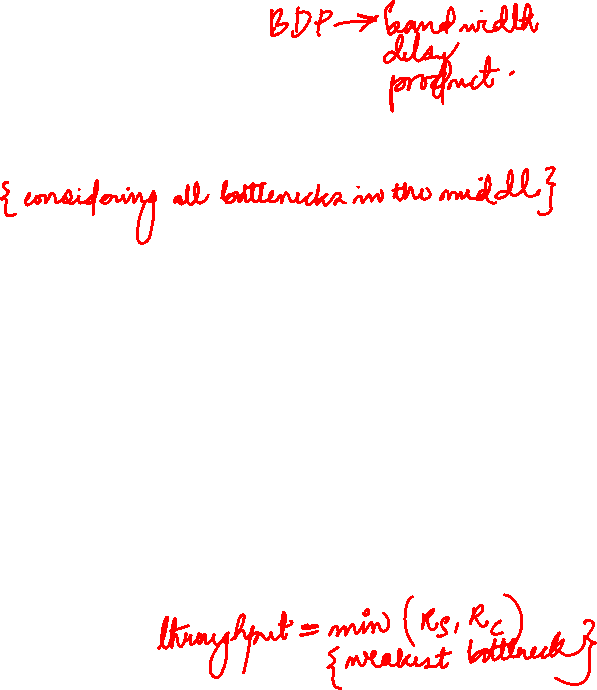 BDP → bandwidth
delay
product.
{considering all bottlenecks in the middl}
throughput = min (Rs, Rc)
{weakest bottleneck}